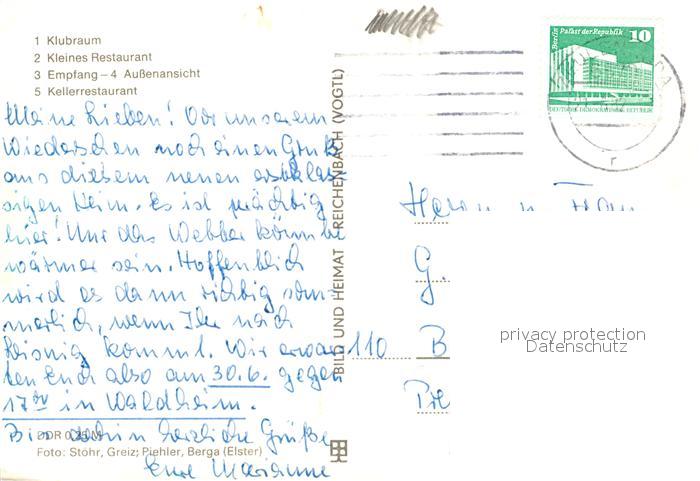 1 Klubraum
2 Kleines Restaurant
3 Empfang – 4 Außenansicht
5 Kellerrestaurant
Meine Lieben! Vor unserem
Wiedersehen noch einen Gruß
aus diesem neuen erstklas-
sigen Heim. Es ist prächtig
hier! Nur das Wetter könnte
wärmer sein. Hoffentlich
wird es dann richtig som-
merlich, wenn Ihr nach
kommt. Wir erwar-
ten Euch also am 30.6. gegen
17 00 in Waldheim.
Bis dahin herzliche Grüße
Eure Marianne
DDR 0,25 M
Foto: Stöhr, Greiz; Piehler, Berga (Elster)
BILD UND HEIMAT REICHENBACH (VOGTL)
Berlin Palast der Republik 10
DEUTSCHE DEMOKRATISCHE REPUBLIK
r
Herrn u. Frau
G.
110 B
privacy protection
Datenschutz